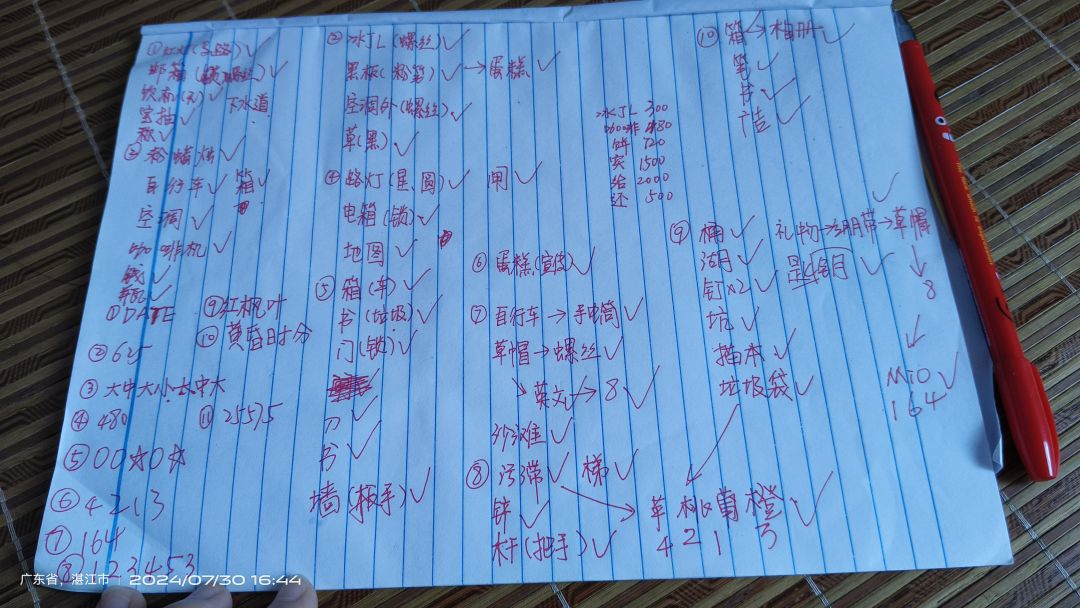 ①红灯(马路)✓
邮箱(锁螺丝)✓
下水道
③粉蜡烛✓
自行车✓ 箱✓
空调✓
咖啡机✓
①DATE
②65
③大中大小大中大
④480
⑤00☆0☆
⑥4213
⑦164
⑧123453
⑨红枫叶
⑩黄昏时分
⑪25515
②冰几(螺丝)✓
黑板(粉笔)✓→蛋糕✓
空调外(螺丝)✓
草(黑)✓
④路灯(星、圆)✓ 闸✓
电箱(锁)✓
地图✓
⑤箱(车)✓
书(垃圾)✓
门(锁)✓
刀✓
书✓
墙(扳手)✓
冰几 300
咖啡 480
饼 120
实 1500
给 2000
还 500
⑥蛋糕(宣传)✓
⑦自行车→手电筒✓
草帽→螺丝✓
↘英文→8✓
沙滩✓
⑧污滞✓ 梯✓
锌✓
木干(把手)✓
草桃萄橙✓
4 2 1 3
⑨桶✓
湖✓
钉×2✓
坑✓
描本✓
垃圾袋✓
礼物→绷带→草帽✓
是4钥✓
8
M10✓
164
⑩箱→相册✓
笔✓
书✓
广告✓
广东省，湛江市 2024/07/30 16:44